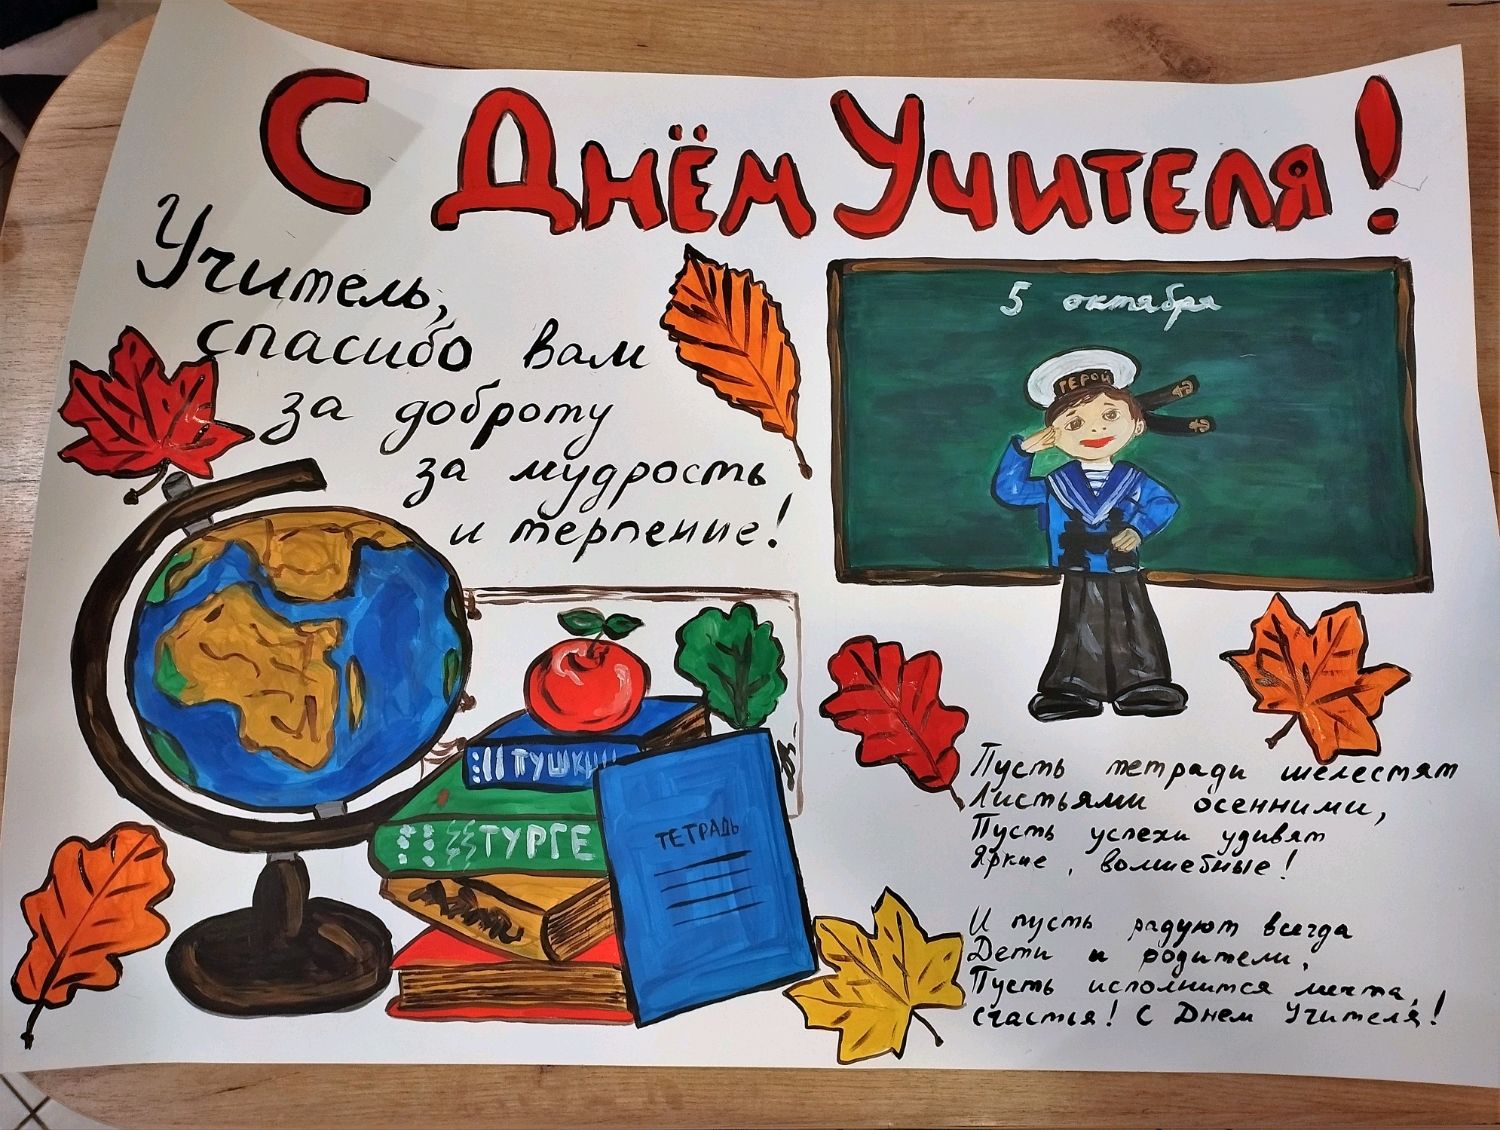 С Днём Учителя!
Учитель,
спасибо вам
за доброту
за мудрость
и терпение!
5 октября
ГЕРОЙ
ПУШКИН
ТУРГЕ
ТЕТРАДЬ
Пусть тетради шелестят
Листьями осенними,
Пусть успехи удивят
Яркие, волшебные!
И пусть радуют всегда
Дети и родители,
Пусть исполнится мечта,
счастья! С Днем Учителя!